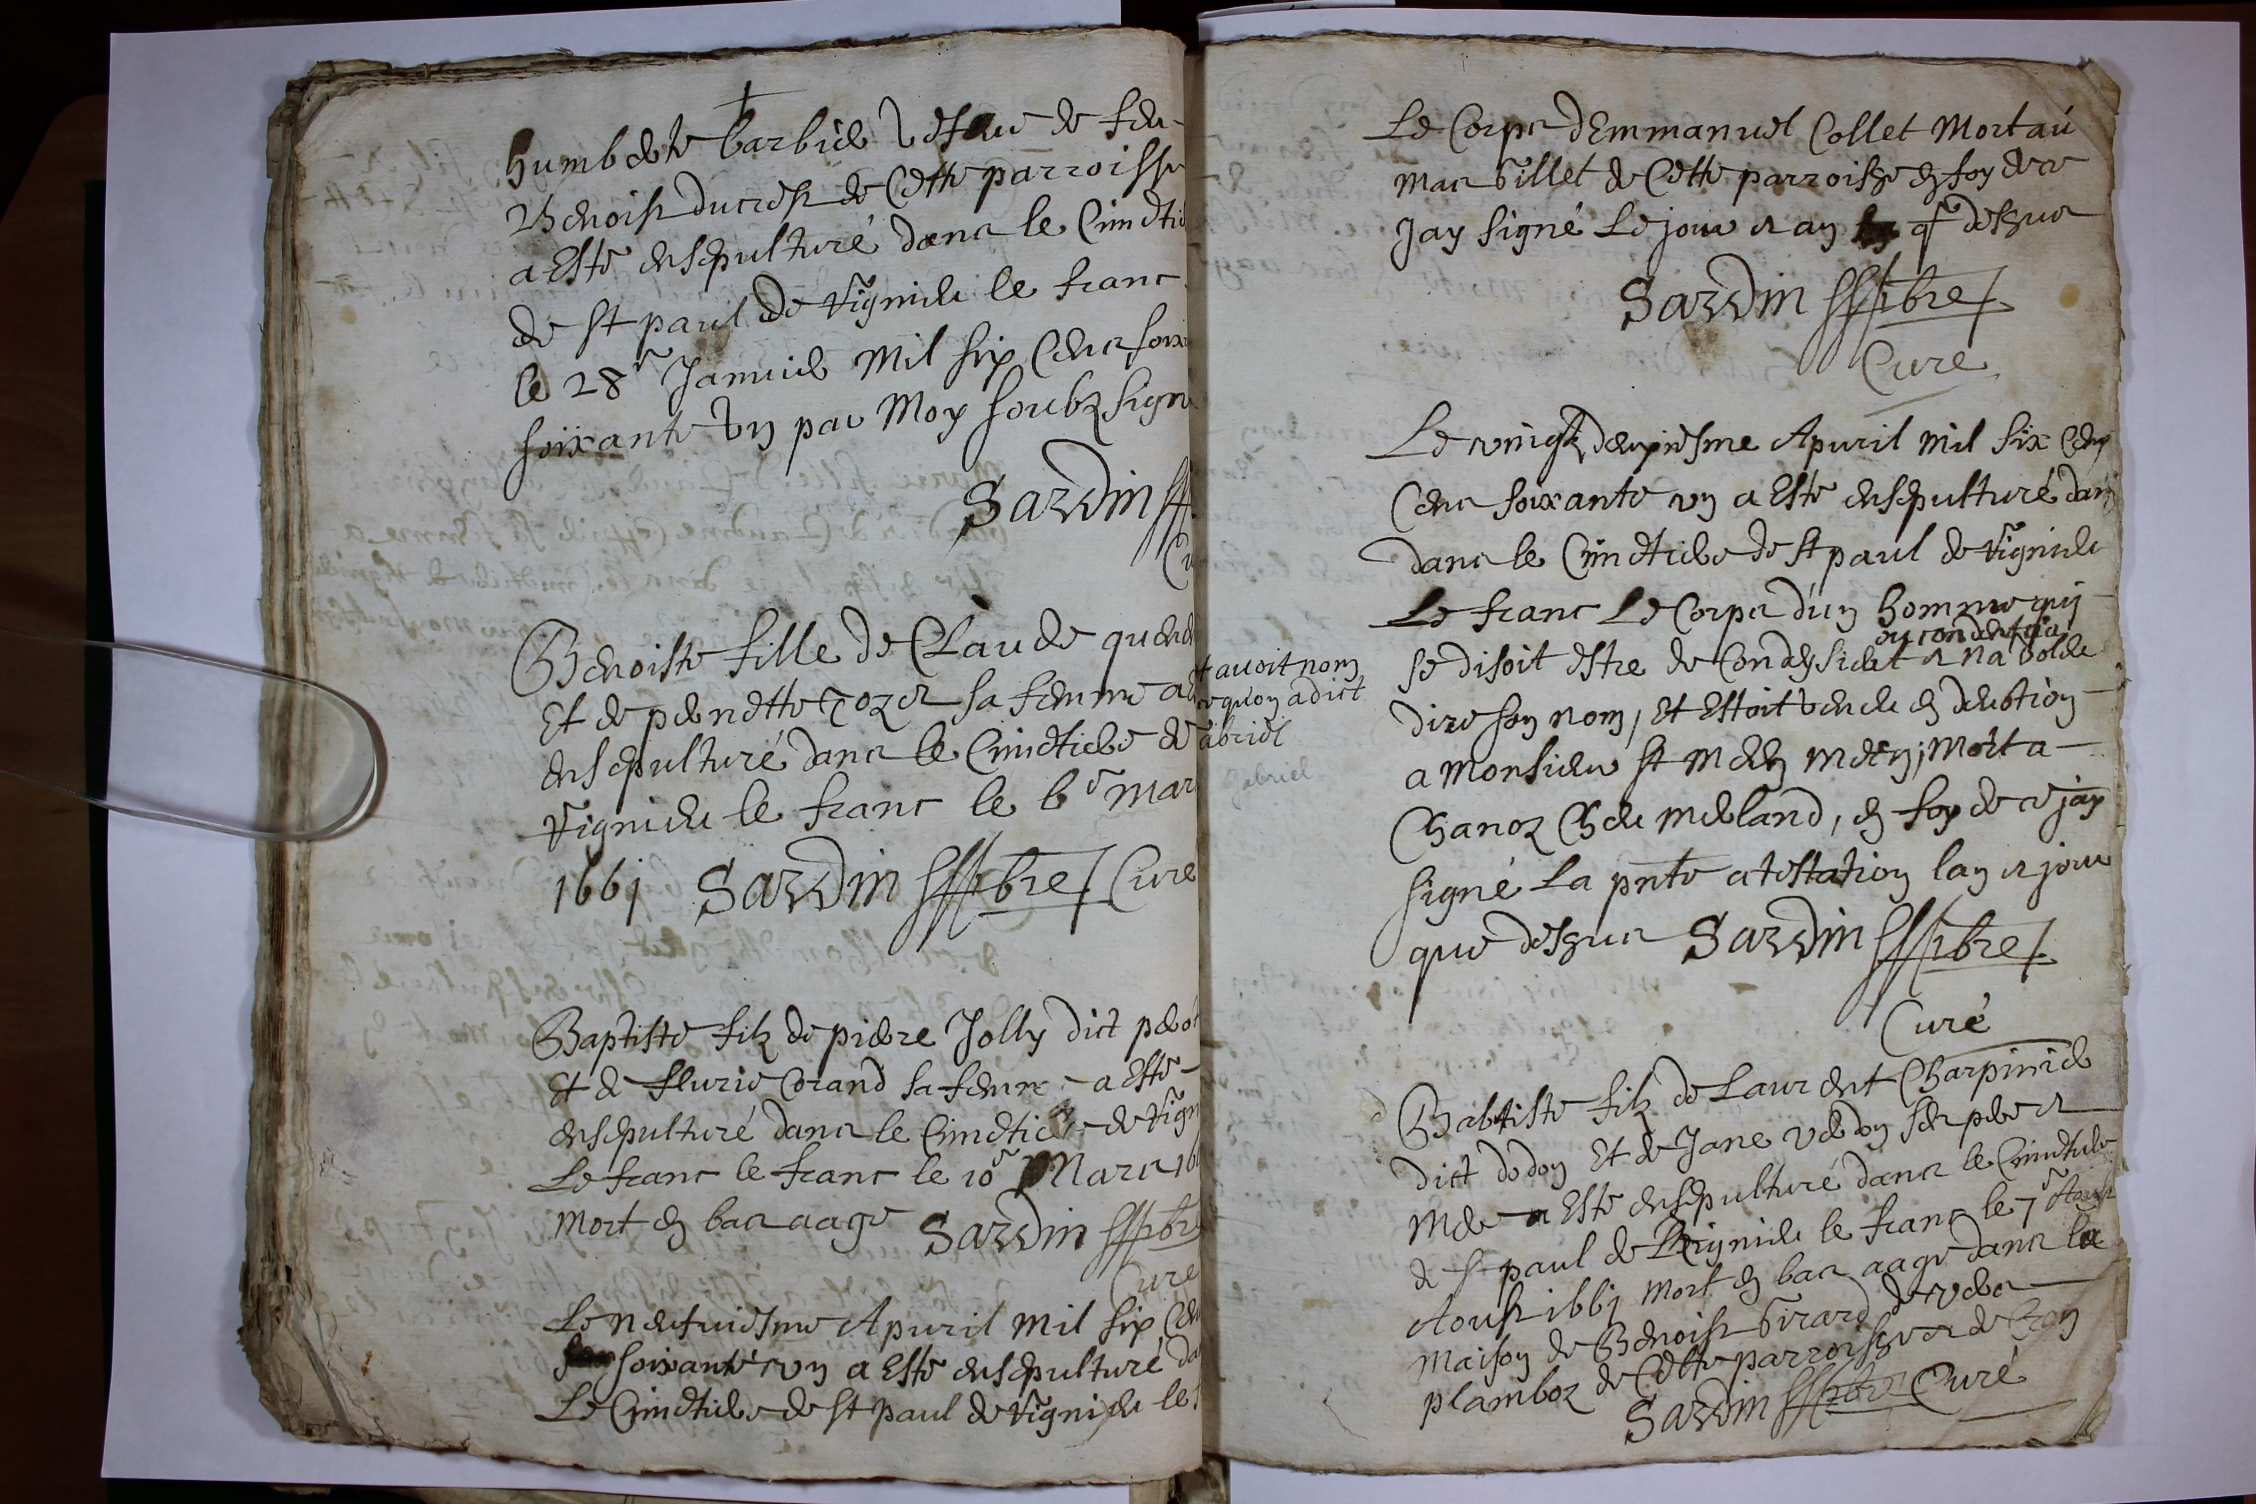 humberte barbier vefve de feu
Benoist ducrest de Cette parroisse
a Esté ensepulturé dans le Cimeti
de st paul de Vignieu le franc
le 28e Januier Mil six Cens soix
soixante vn par Moy soubz signe
Sardin
Benoiste fille de Claude
Et de pernette sa femme a
ensepulturé dans le Cimetiere de
Vignieu le franc le 6e mar
1661 Sardin pbre Curé
Baptiste filz de pierre Jolly dict
Et de flurie Corand sa femme a Esté
ensepulturé dans le Cimetiere de Vign
Le franc le franc le 10e Mars 166
Mort en bas aage Sardin pbr
Cure
Le neufuiesme Apuril mil six Cen
soixante vn a Esté ensepulturé da
Le Cimetiere de st paul de Vignieu le f
Le Corps dEmmanuel Collet Mort au
Mas Gillet de Cette parroisse en foy de ce
Jay signé Le jour et an q dessus
Sardin pbre
Cure
Le vingt deuxiesme Apuril mil six Cens
Cens soixante vn a Esté ensepulturé dans
dans le Cimetiere de st paul de Vignieu
Le franc Le Corps d'un homme qui
ou
se disoit estre de et na volu
dire son nom, Et Estoit venu en deuotion
a Monsieur st mort a
Chanoz Chez merland, en foy de ce jay
signé La pnte atestation lan et jour
que dessus Sardin pbre
Curé
+ avoit nom
ce qu'on a dict
abriel
gabriel
Babtiste filz de Laurent Charpinel
dict dodon Et de Jane verdon ses pere et
Mere a Esté ensepulturé dans le Cimetiere
de st paul de Vignieu le franc le 7e Aoust
Aoust 1661 Mort en bas aage dans la
Maison de Benoist Girard de vers
plamboz de Cette parroisse et de
Sardin pbre Curé